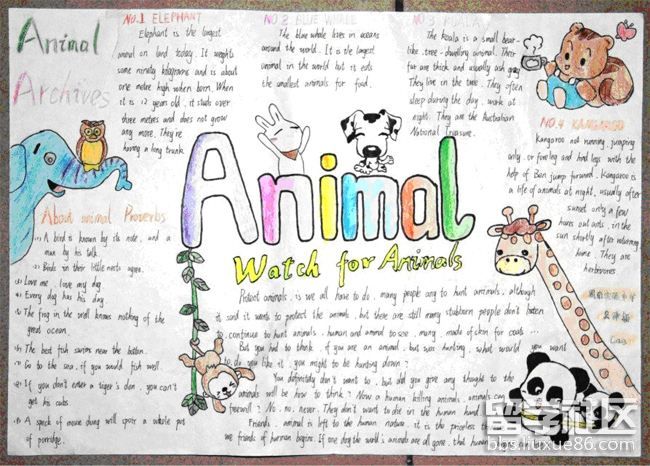 Animal
Archives
NO.1 ELEPHANT
Elephant is the largest
animal on land today. It weights
some ninety kilograms and is about
one metre high when born. When
it is 12 years old, it studs over
three meters and does not grow
any more. They're
having a long trunk.
NO.2 BLUE WHALE
The blue whale lives in oceans
around the world. It is the largest
animal in the world but it eats
the smallest animals for food.
NO.3
The koala is a small bear-
like tree-dwelling animal. Their
fur are thick and usually ash gray
They live in the trees. They often
sleep during the day, work at
night. They are the Australian
National Treasure.
NO.4 KANGAROO
Kangaroo not running jumping
only, or foreleg and hind legs with the
help of jump forward. Kangaroo is
a life of animals at night, usually after
sunset only a few
hours out ants, in the
sun shortly after returning
home. They are
herbivores
Animal
Watch for Animals
About animal Proverbs
(1) A bird is known by its note, and a
man by his talk.
(2) Birds in their little nests agree.
(3) Love me, love my dog
(4) Every dog has his day.
(5) The frog in the well knows nothing of the
great ocean.
(6) The best fish swims near the bottom.
(7) Go to the sea, if you would fish well.
(8) If you don't enter a tiger's den, you can't
get his cubs.
(9) A speck of mouse dung will spoil a whole pot
of porridge.
Protect animals, is we all have to do. many people ang to hunt animals, although
it said it wants to protect the animals, but there are still many stubborn people don't listen
to, continue to hunt animals, human and animal to see, many, made of skin for coats ...
But you had to think: if you are an animal, but was hunting, what would you want
to do you like it, you might be hunting down?
You definitely don't want to, but did you give any thought to the
animals will be how to think? Now a human killing animals, animals can
farewell? No, no, never. They don't want to die in the human hand
Friends, animal is left to the human nature, it is the priceless
we friends of human begins. If one day the world's animals are all gone, that human
留学社区
bbs.liuxue86.com